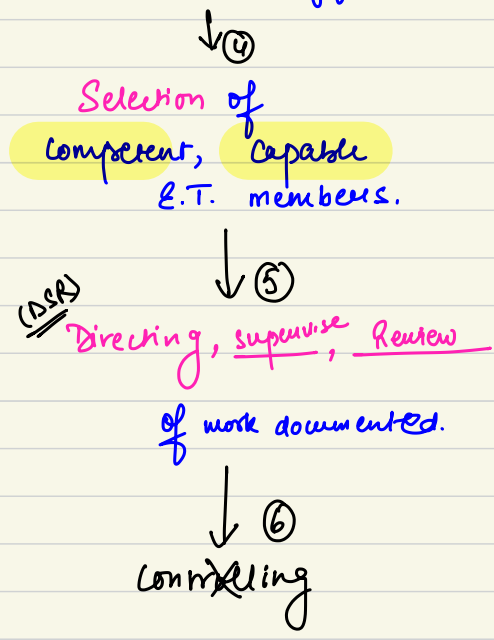 ④
Selection of
Competent, Capable
E.T. members.
⑤
(DSR)
Directing, supervise, Review
of work documented.
⑥
Controlling